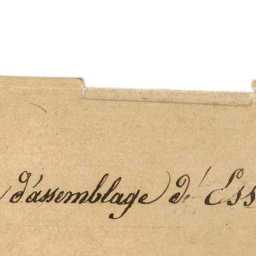 d'assemblage d'Ess